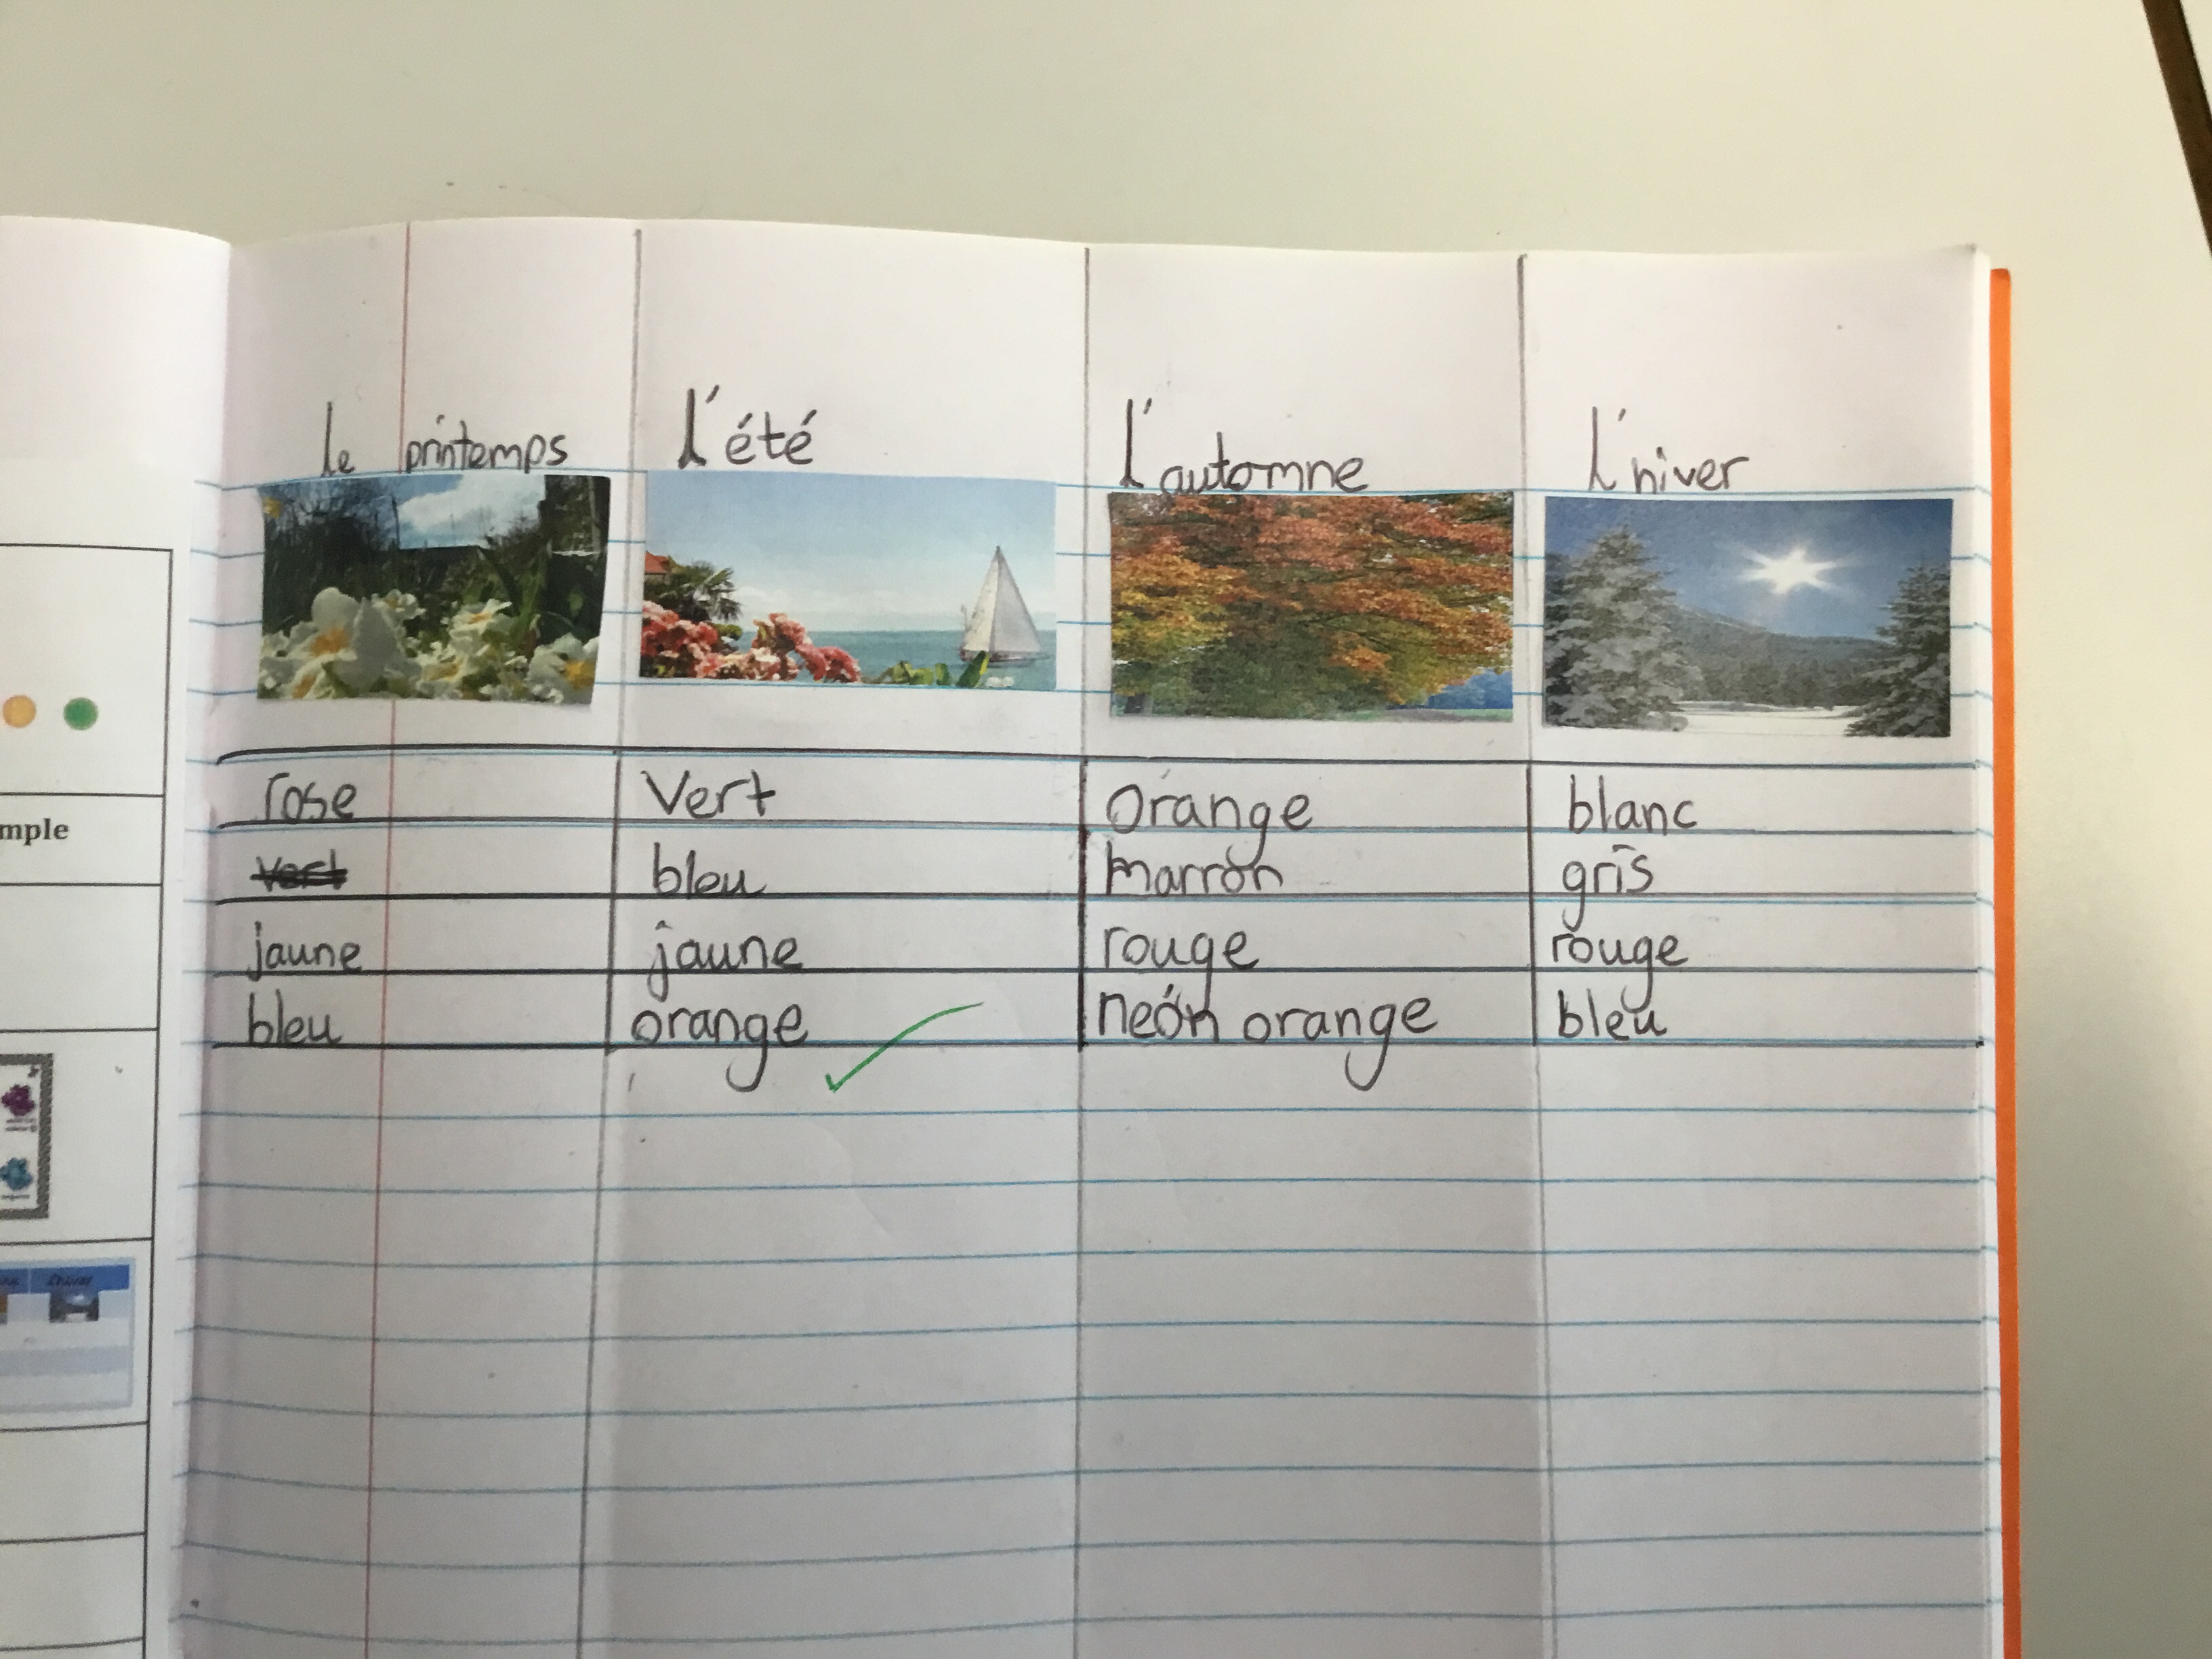 mple
le printemps
l'été
l'automne
l'hiver
rose
Vert
orange
blanc
vert
bleu
marron
gris
jaune
jaune
rouge
rouge
bleu
orange
neón orange
bleu
L'hiver